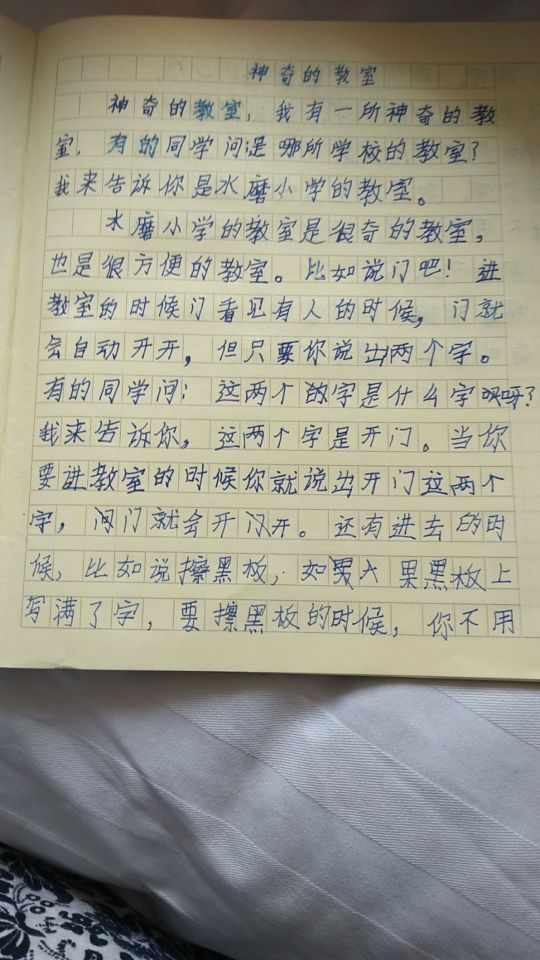 神奇的教室
神奇的教室，我有一所神奇的教
室，有的同学问是哪所学校的教室？
我来告诉你是水磨小学的教室。
水磨小学的教室是很奇的教室，
也是很方便的教室。比如说门吧！进
教室的时候门看见有人的时候，门就
会自动开开，但只要你说出两个字。
有的同学问：这两个的字是什么字呀？
我来告诉你，这两个字是开门。当你
要进教室的时候你就说出开门这两个
字，门就会开开。还有进去的时
候，比如说擦黑板，如果黑板上
写满了字，要擦黑板的时候，你不用